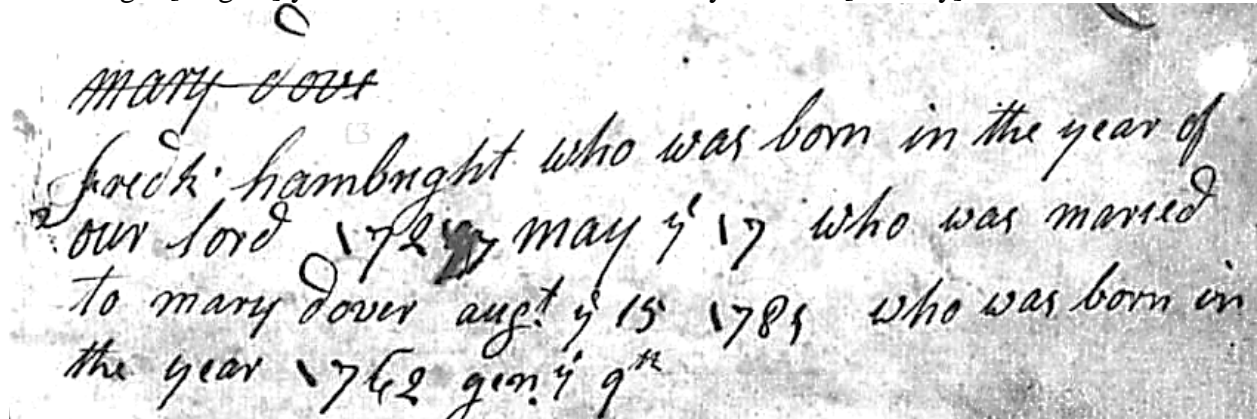 mary dove
fredk. hambright who was born in the year of
our lord 1727 may ye 17 who was maried
to mary dover augt. ye 15 1781 who was born in
the year 1762 gen. ye 9th